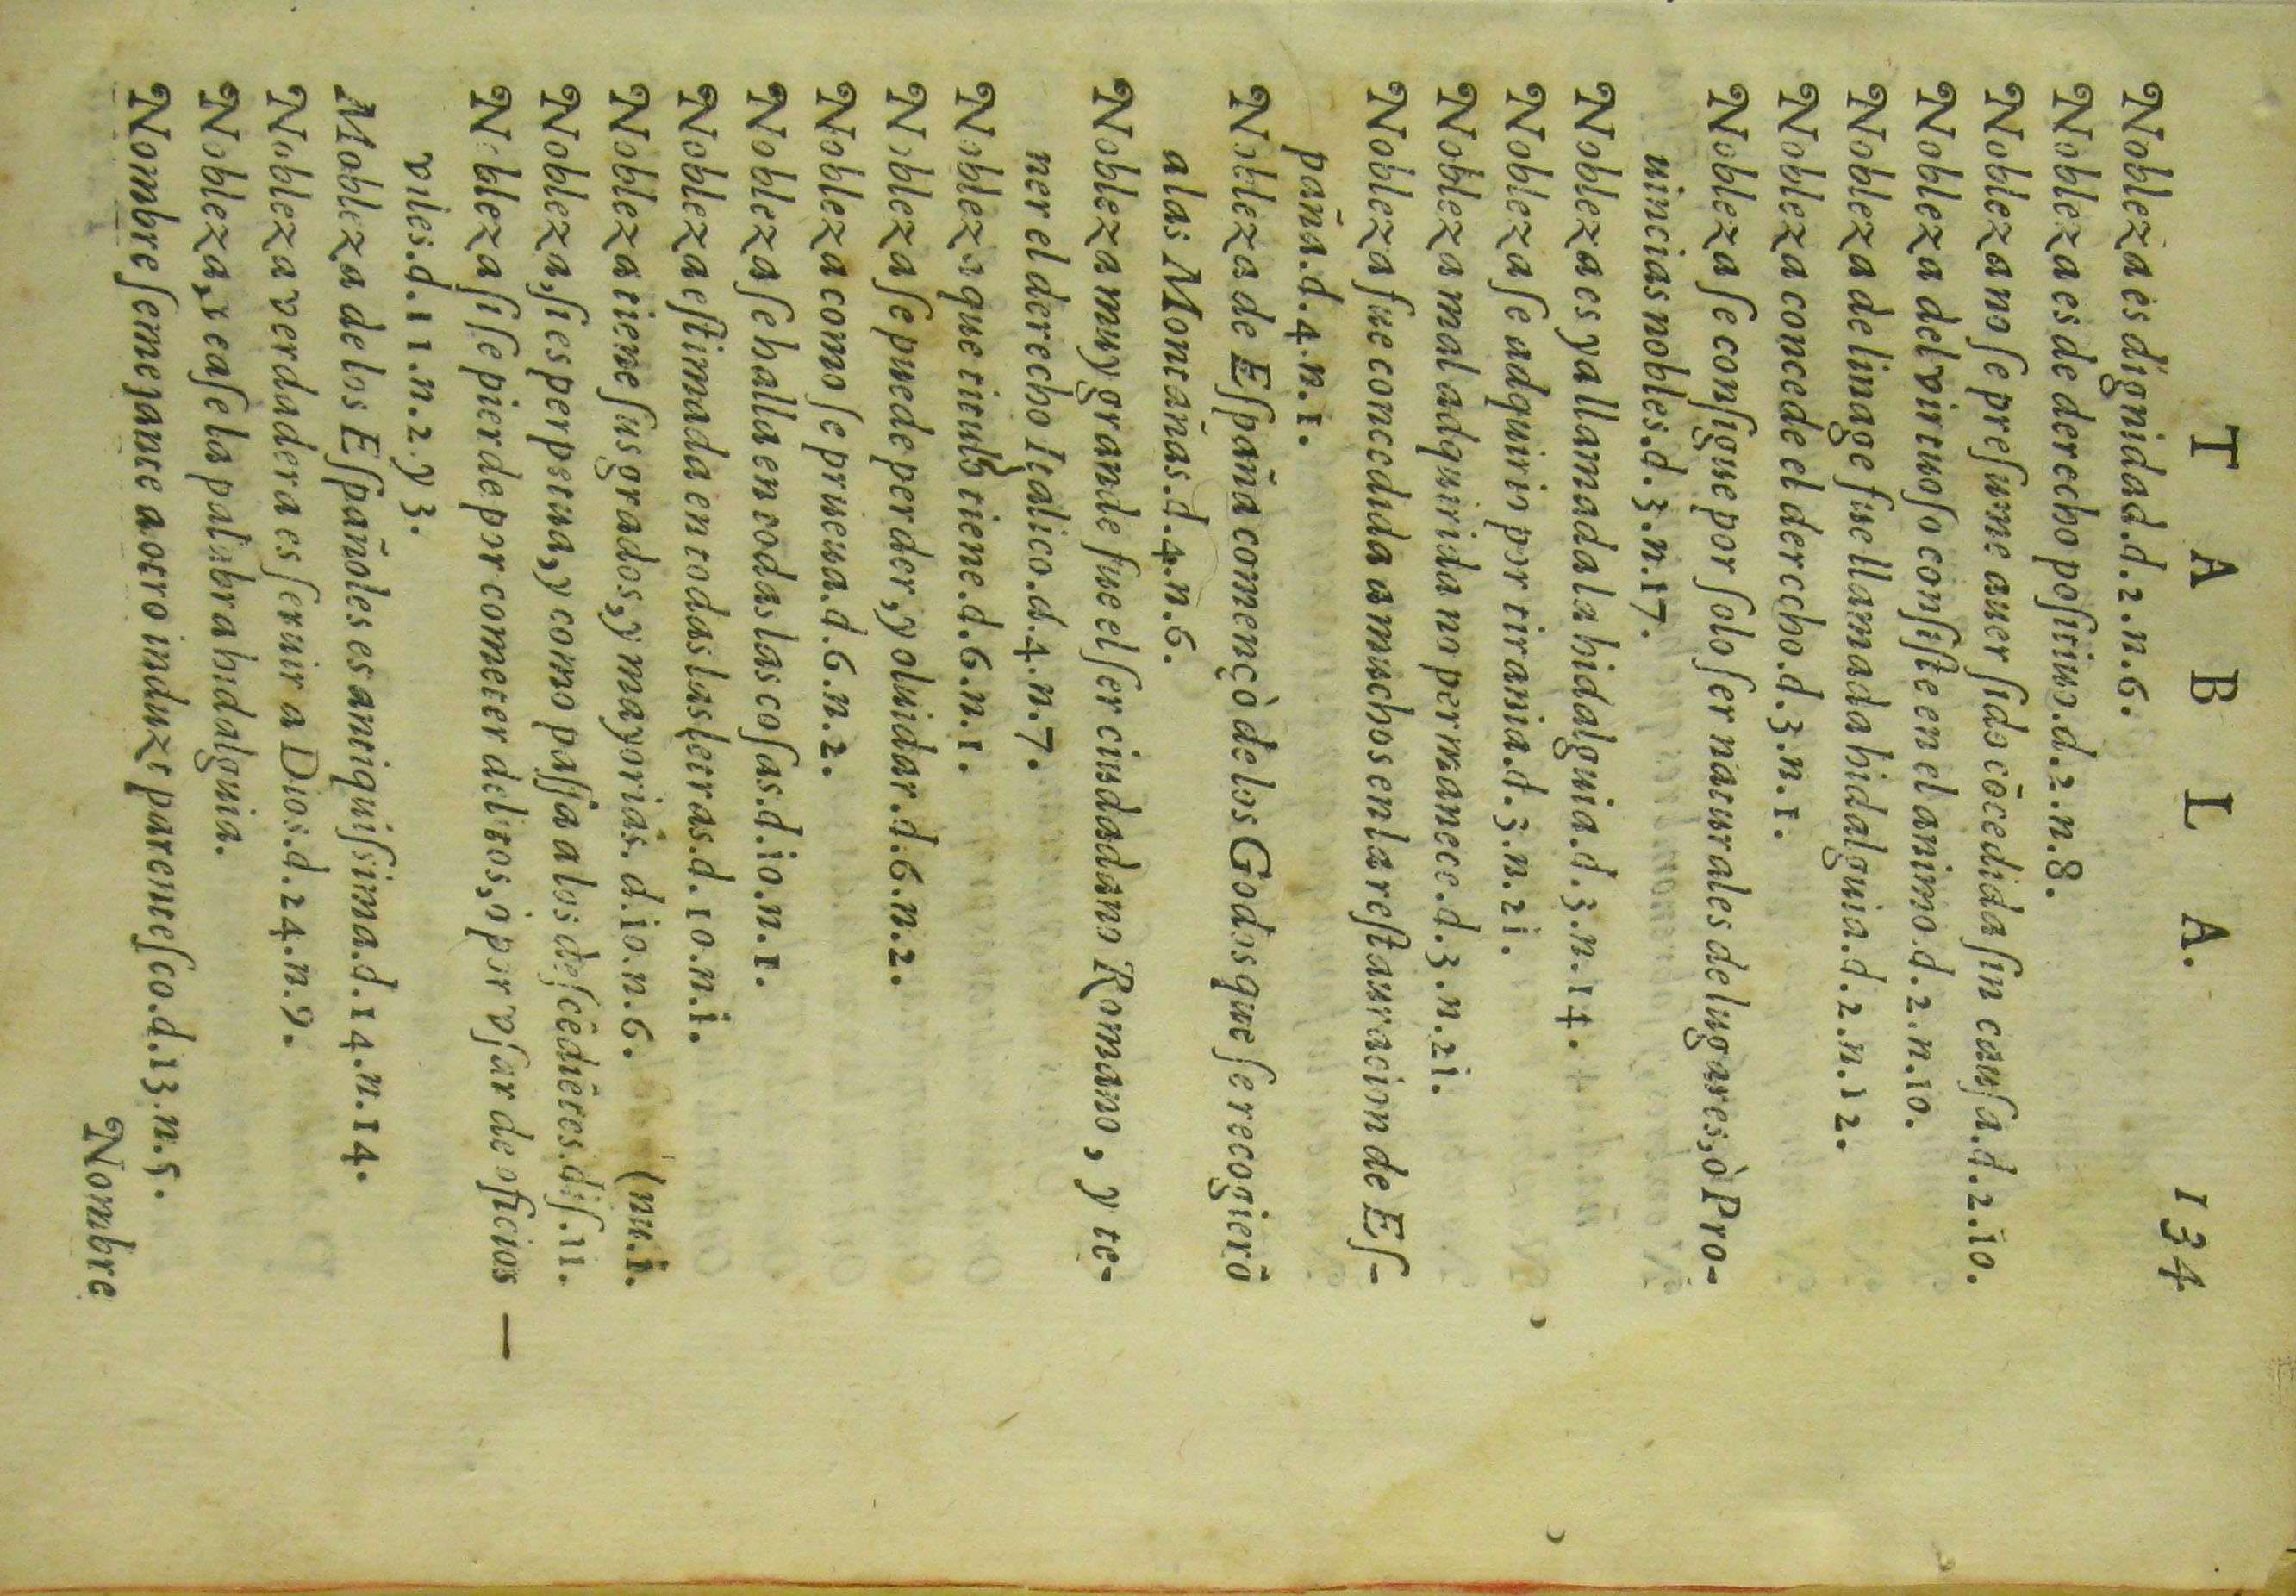 TABLA. 134
Nobleza es dignidad.d.2.n.6.
Nobleza es de derecho poſitiuo.d.2.n.8.
Nobleza no ſe preſume auer ſido cõcedida ſin cauſa.d.2.10.
Nobleza del virtuoſo conſiſte en el animo.d.2.n.10.
Nobleza de linage fue llamada hidalguia.d.2.n.12.
Nobleza concede el derecho.d.3.n.1.
Nobleza ſe conſigue por ſolo ſer naturales de lugares, ò Pro-
uincias nobles.d.3.n.17.
Nobleza es ya llamada la hidalguia.d.3.n.14.
Nobleza ſe adquirio por tirania.d.3.n.21.
Nobleza mal adquirida no permanece.d.3.n.21.
Nobleza fue concedida a muchos en la reſtauracion de Eſ-
paña.d.4.n.1.
Nobleza de Eſpaña començò de los Godos que ſe recogierõ
a las Montañas.d.4.n.6.
Nobleza muy grande fue el ſer ciudadano Romano, y te-
ner el derecho Italico.d.4.n.7.
Nobleza que titulo tiene.d.6.n.1.
Nobleza ſe puede perder, y oluidar.d.6.n.2.
Nobleza como ſe prueua.d.6.n.2.
Nobleza ſe halla en todas las coſas.d.10.n.1.
Nobleza eſtimada en todas las letras.d.10.n.1.
Nobleza tiene ſus grados, y mayorias.d.10.n.6. (nu.1.
Nobleza, ſi es perpetua, y como paſſa a los deſcēdiētes.diſ.11.
Nobleza ſi ſe pierde por cometer delitos, ò por vſar de oficios
viles.d.11.n.2.y 3.
Mobleza de los Eſpañoles es antiquiſsima.d.14.n.14.
Nobleza verdadera es ſeruir a Dios.d.24.n.9.
Nobleza, veaſe la palabra hidalguia.
Nombre ſemejante a otro induze parenteſco.d.13.n.5.
Nombre